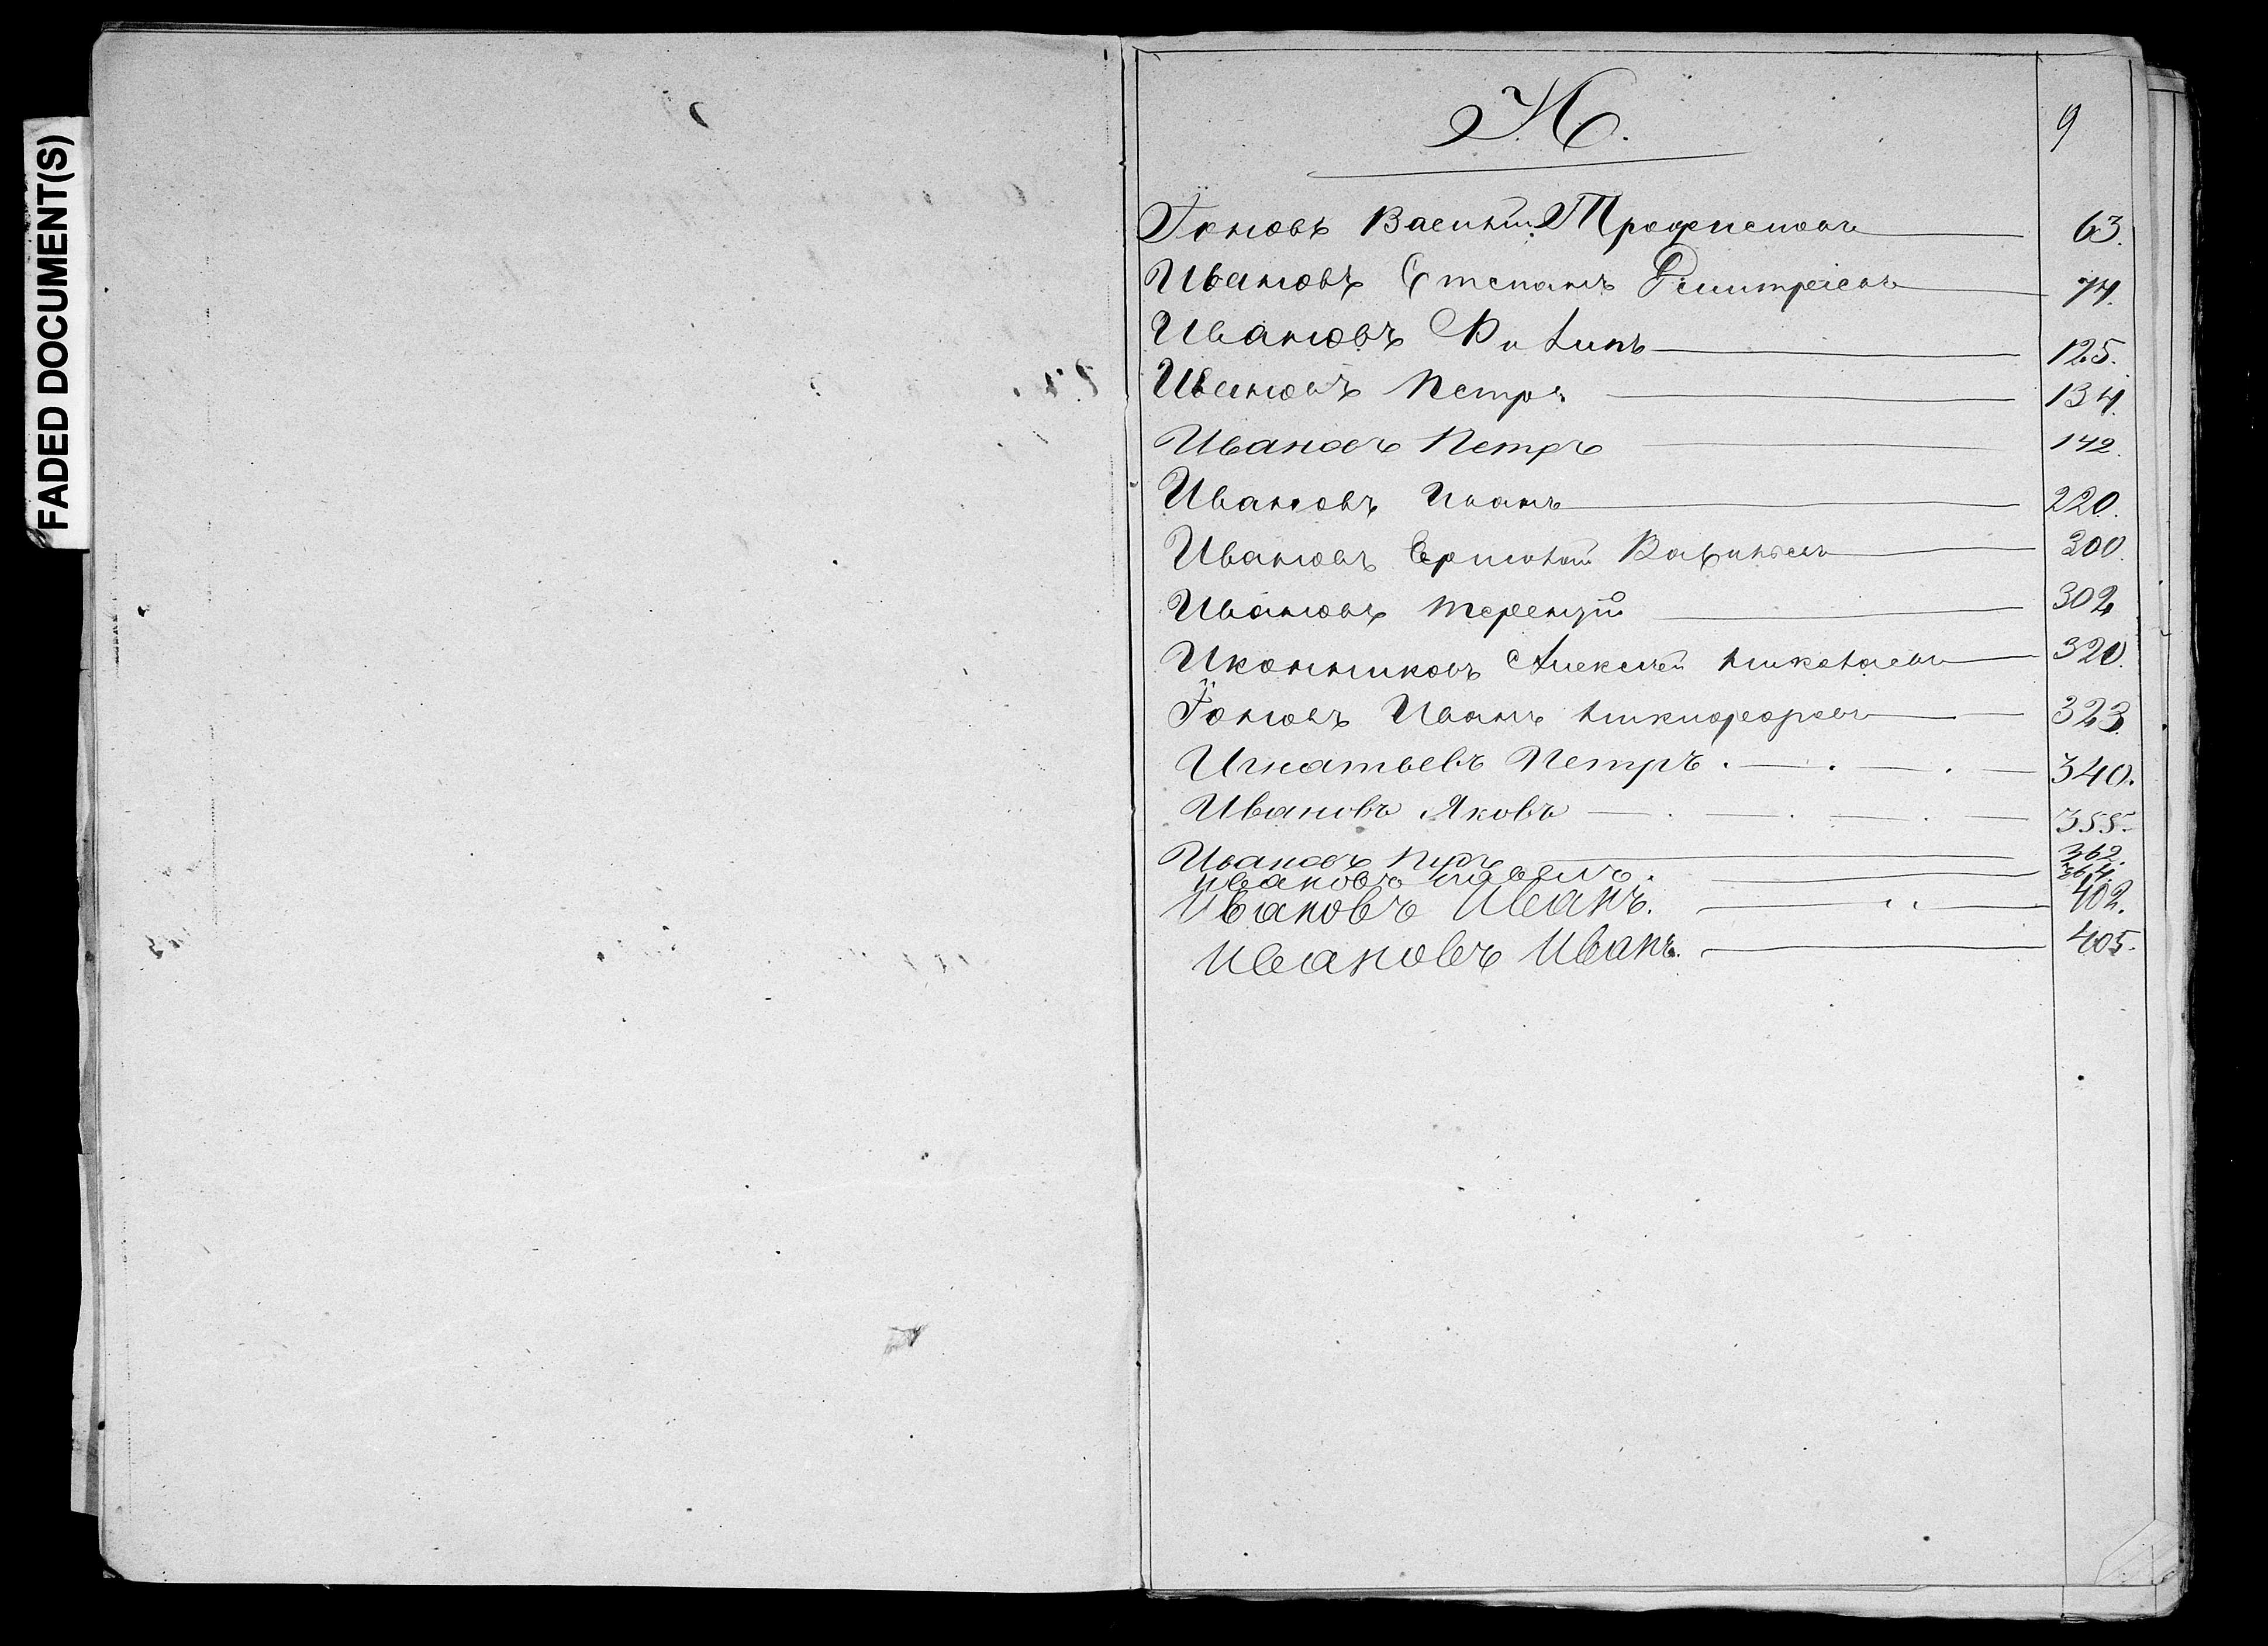 FADED DOCUMENT(S)
И.
9
Іоновъ Василій Трофимовъ 63.
Ивановъ Степанъ Дмитріевъ 74.
Ивановъ Филипъ 125.
Ивановъ Петръ 134.
Ивановъ Петръ 142.
Ивановъ Иванъ 220.
Ивановъ Ермолай 300.
Ивановъ Терентій 302
Иконниковъ Алексей Николаевъ 320.
Іоновъ Иванъ Никифоровъ 323.
Игнатьевъ Петръ. 340.
Ивановъ Яковъ 355.
Ивановъ 362.
Ивановъ Павелъ. 364.
Ивановъ Иванъ. 402.
Ивановъ Иванъ. 405.